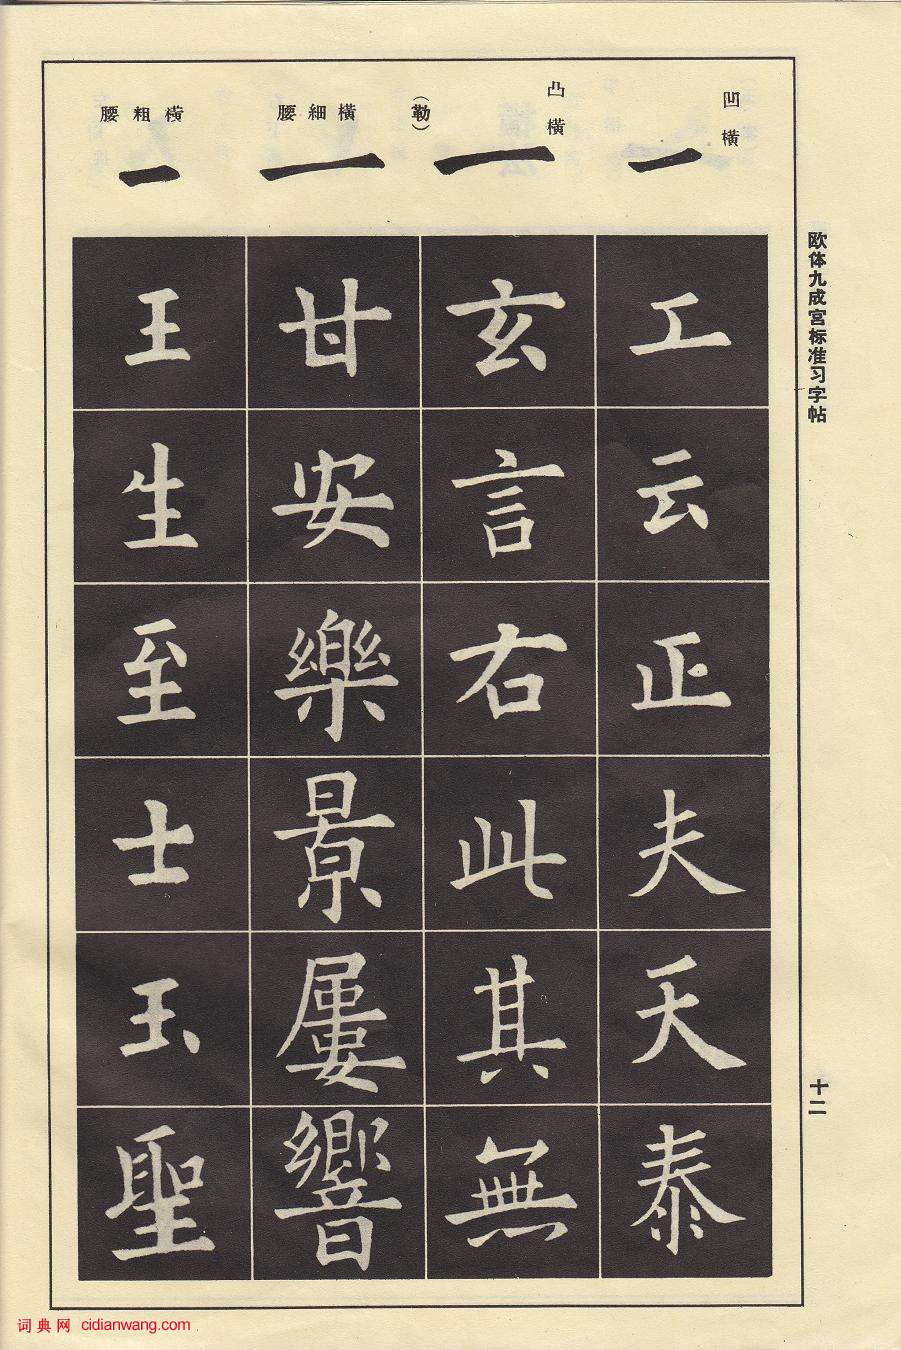 欧体九成宫标准习字帖
十二
凹橫
工云正夫天泰
凸橫
（勒）
玄言右此其無
橫細腰
甘安樂景屢響
橫粗腰
王生至士玉聖
词典网 cidianwang.com